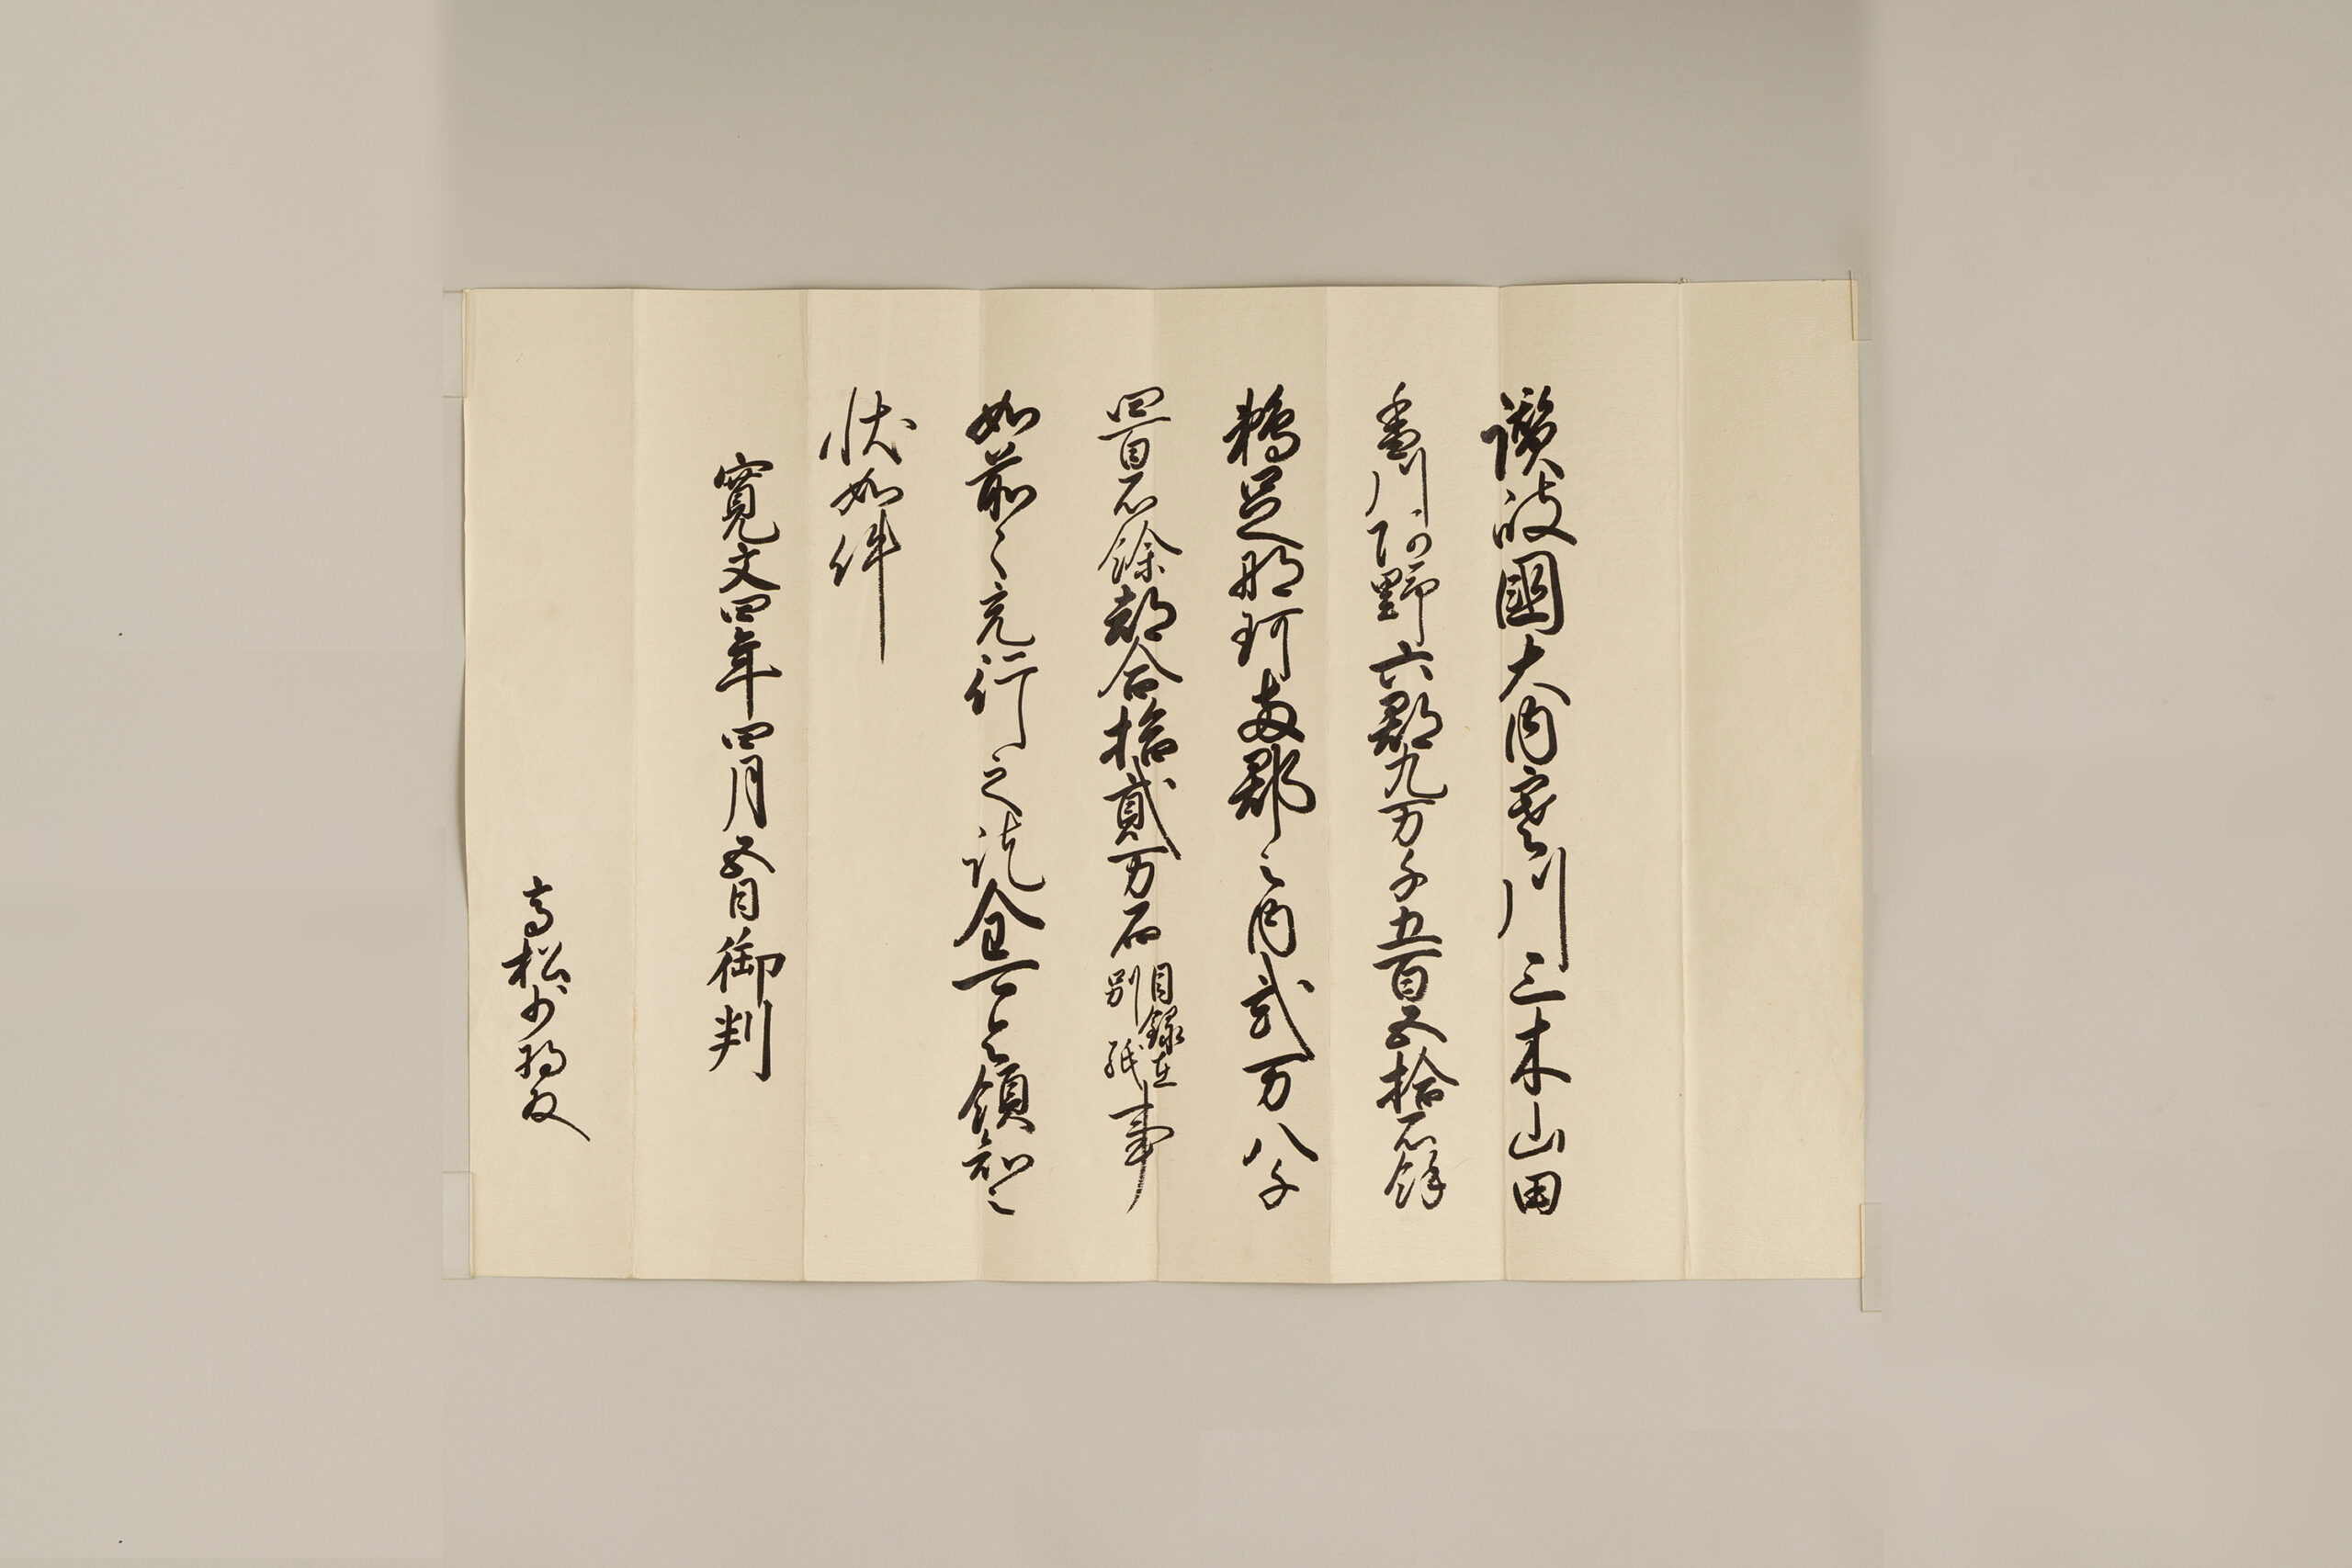 讃岐國大内寒川三木山田
香川阿野六郡九万千五百五拾石餘
鵜足那珂両郡之内弐万八千
四百石餘都合拾貳万石目録在別紙事
如前々充行之訖全可令領知之
状如件
寛文四年四月五日御判
高松少将殿